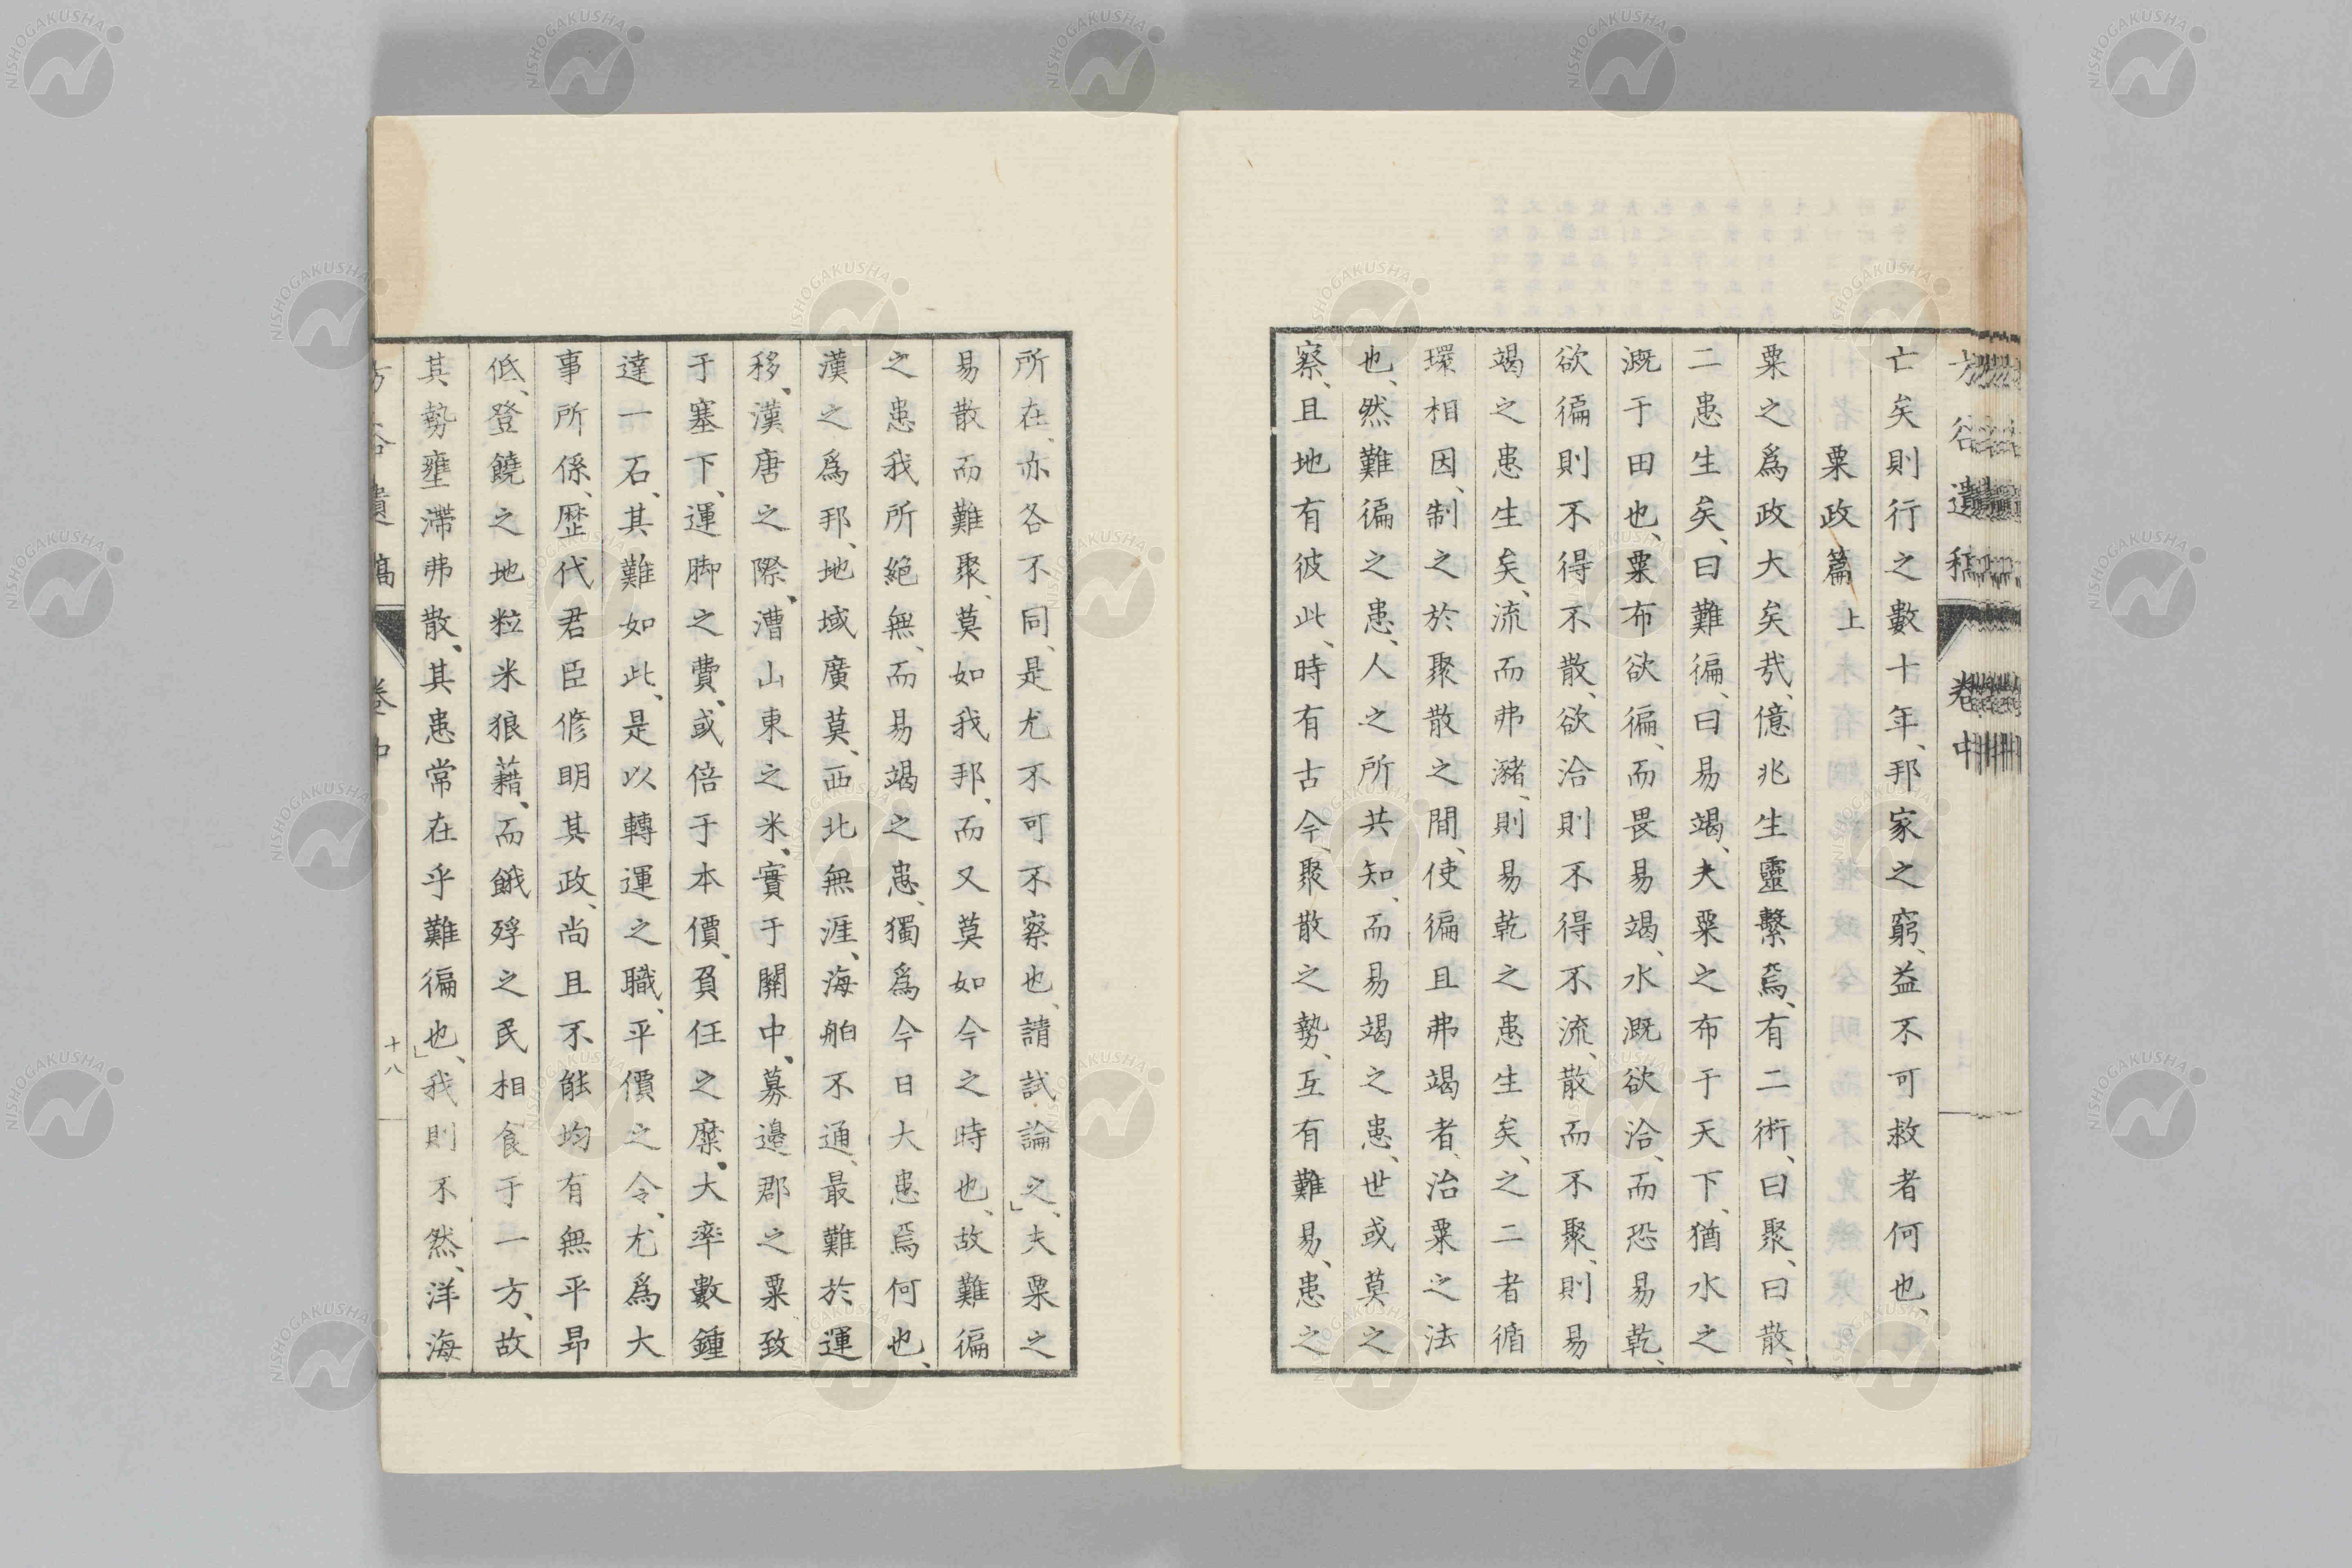 方谷遺稿 卷中
亡矣則行之數十年、邦家之窮、益不可救者何也、
粟政篇 上
粟之爲政大矣哉、億兆生靈繫焉、有二術、曰聚、曰散、
二患生矣、曰難徧、曰易竭、夫粟之布于天下、猶水之
漑于田也、粟布欲徧、而畏易竭、水漑欲洽、而恐易乾、
欲徧則不得不散、欲洽則不得不流、散而不聚、則易
竭之患生矣、流而弗瀦、則易乾之患生矣、之二者循
環相因、制之於聚散之間、使徧且弗竭者、治粟之法
也、然難徧之患、人之所共知、而易竭之患、世或莫之
察、且地有彼此、時有古今、聚散之勢、互有難易、患之
所在、亦各不同、是尤不可不察也、請試論之」、夫粟之
易散而難聚、莫如我邦、而又莫如今之時也、故難徧
之患我所絕無、而易竭之患、獨爲今日大患焉何也、
漢之爲邦、地域廣莫、西北無涯、海舶不通、最難於運
移、漢唐之際、漕山東之米、實于關中、募邊郡之粟致
于塞下、運脚之費、或倍于本價、負任之糜、大率數鍾
達一石、其難如此、是以轉運之職、平價之令、尤爲大
事所係、歷代君臣修明其政、尚且不能均有無平昻
低、登饒之地粒米狼藉、而餓殍之民相食于一方、故
其勢壅滯弗散、其患常在乎難徧也」、我則不然、洋海
方谷遺稿 卷中 十八
NISHOGAKUSHA